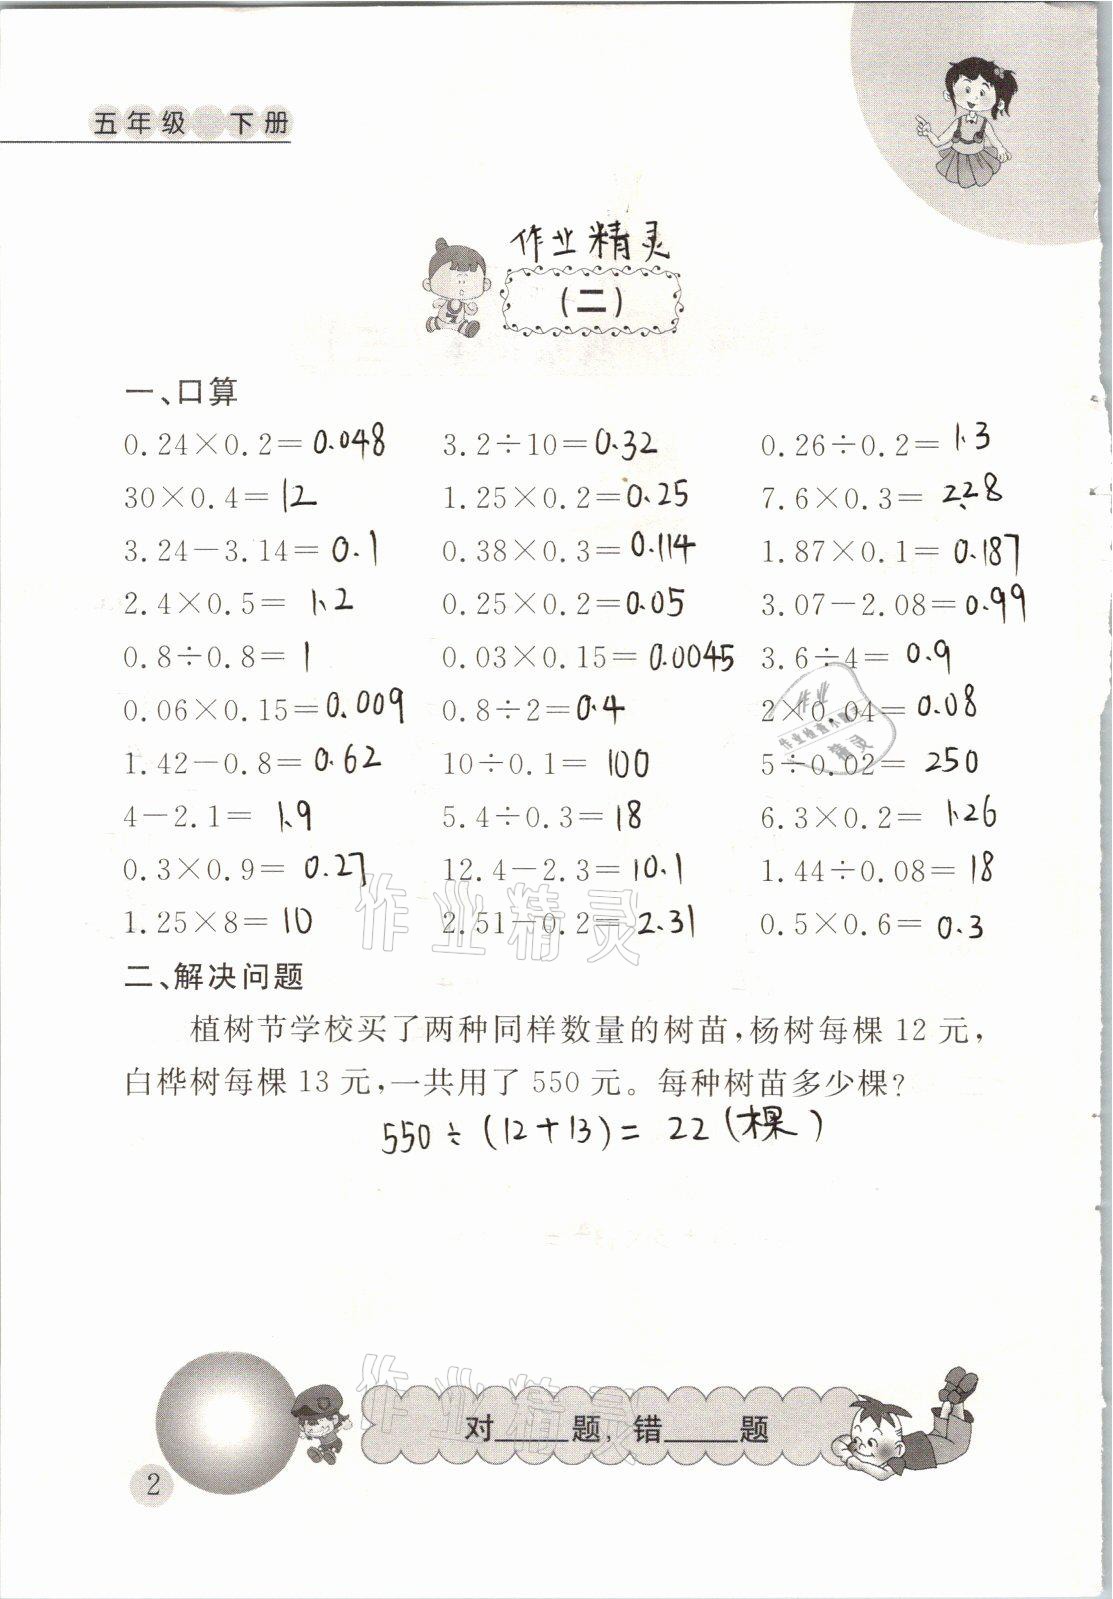 五年级 下册
作业精灵
(二)
一、口算
0.24×0.2=0.048 3.2÷10=0.32 0.26÷0.2=1.3
30×0.4=12 1.25×0.2=0.25 7.6×0.3=2.28
3.24-3.14=0.1 0.38×0.3=0.114 1.87×0.1=0.187
2.4×0.5=1.2 0.25×0.2=0.05 3.07-2.08=0.99
0.8÷0.8=1 0.03×0.15=0.0045 3.6÷4=0.9
0.06×0.15=0.009 0.8÷2=0.4 2×0.04=0.08
1.42-0.8=0.62 10÷0.1=100 5÷0.02=250
4-2.1=1.9 5.4÷0.3=18 6.3×0.2=1.26
0.3×0.9=0.27 12.4-2.3=10.1 1.44÷0.08=18
1.25×8=10 2.51-0.2=2.31 0.5×0.6=0.3
作业精灵
二、解决问题
植树节学校买了两种同样数量的树苗,杨树每棵 12 元,
白桦树每棵 13 元,一共用了 550 元。每种树苗多少棵?
550÷(12+13)=22(棵)
作业精灵
对____题,错____题
2